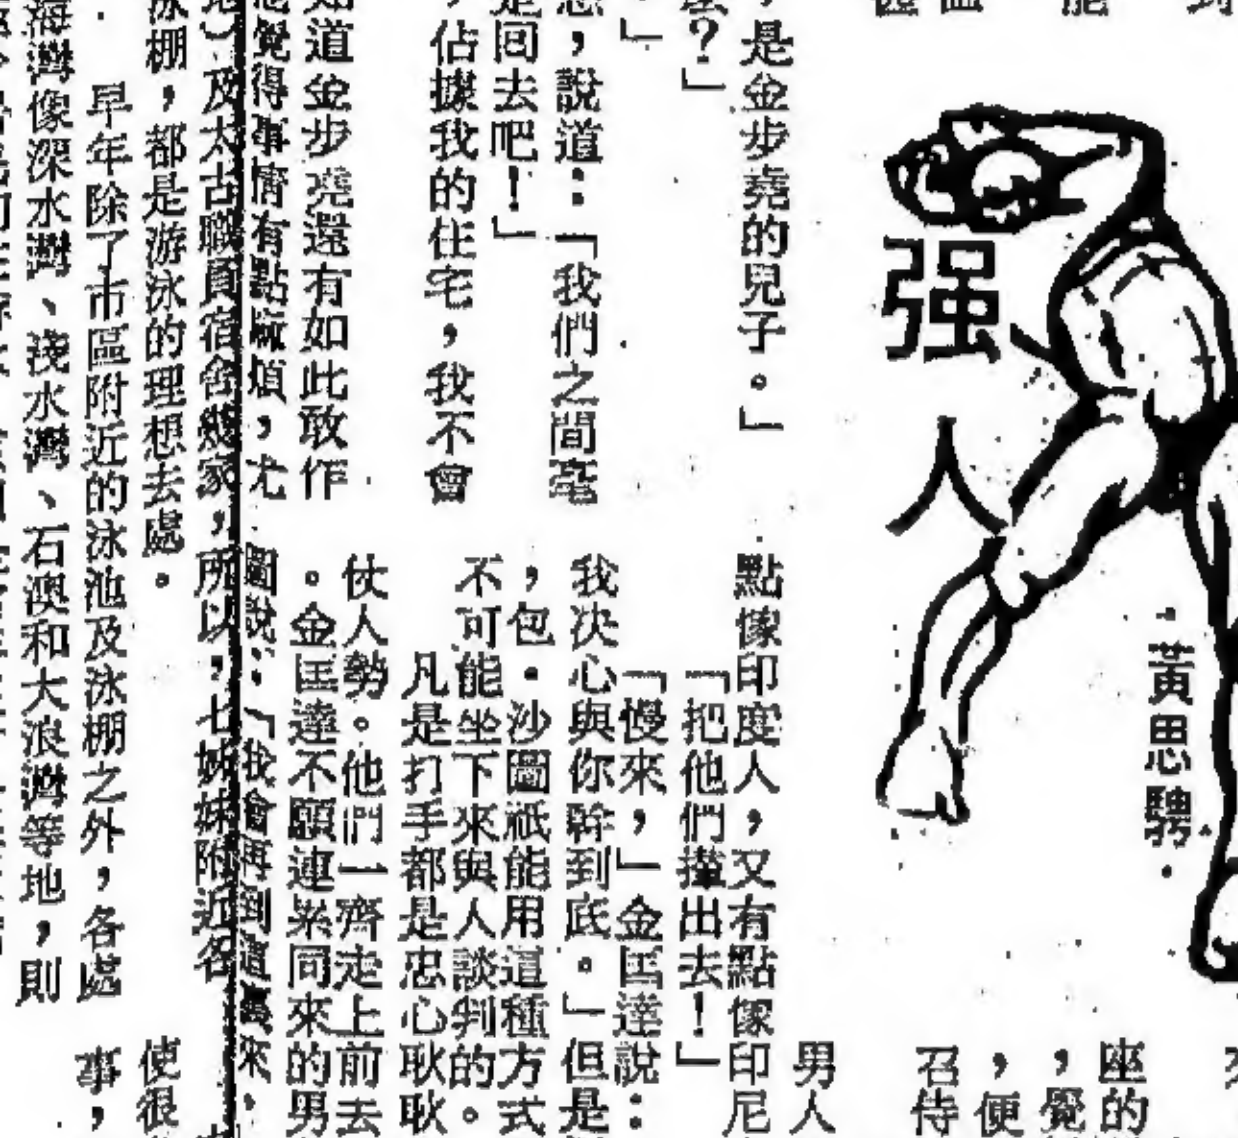 强人
·黃思騁·
，是金步堯的兒子。」
麼？」
」
，說道：「我們之間毫
是回去吧！」
，佔據我的住宅，我不會
知道金步堯還有如此敢作
他覺得事情有點麻煩，尤
點像印度人，又有點像印尼
「把他們攆出去！」
「慢來，」金匡達說：
我決心與你幹到底。」但是
，包·沙圖祇能用這種方式
不可能坐下來與人談判的。
凡是打手都是忠心耿耿
仗人勢。他們一齊走上前去
。金匡達不願連累同來的男
圖說：「我會再到這裏來，
男人
座的
，覺
，便
召侍
及太古職員宿舍幾家，所以，七姊妹附近各
泳棚，都是游泳的理想去處。
早年除了市區附近的泳池及泳棚之外，各處
海灣像深水灣、淺水灣、石澳和大浪灣等地，則
使很
事，